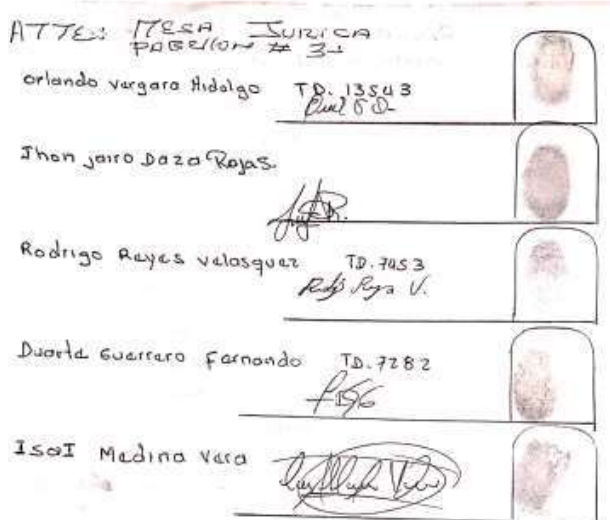 ATTE: MESA JURICA
PABELLON # 3
Orlando vergara Hidalgo TD. 13543
Jhon jairo Daza Rojas.
Rodrigo Reyes velasquez TD. 7453
Duarte Guerrero Fernando TD. 7282
ISaI Medina Vera